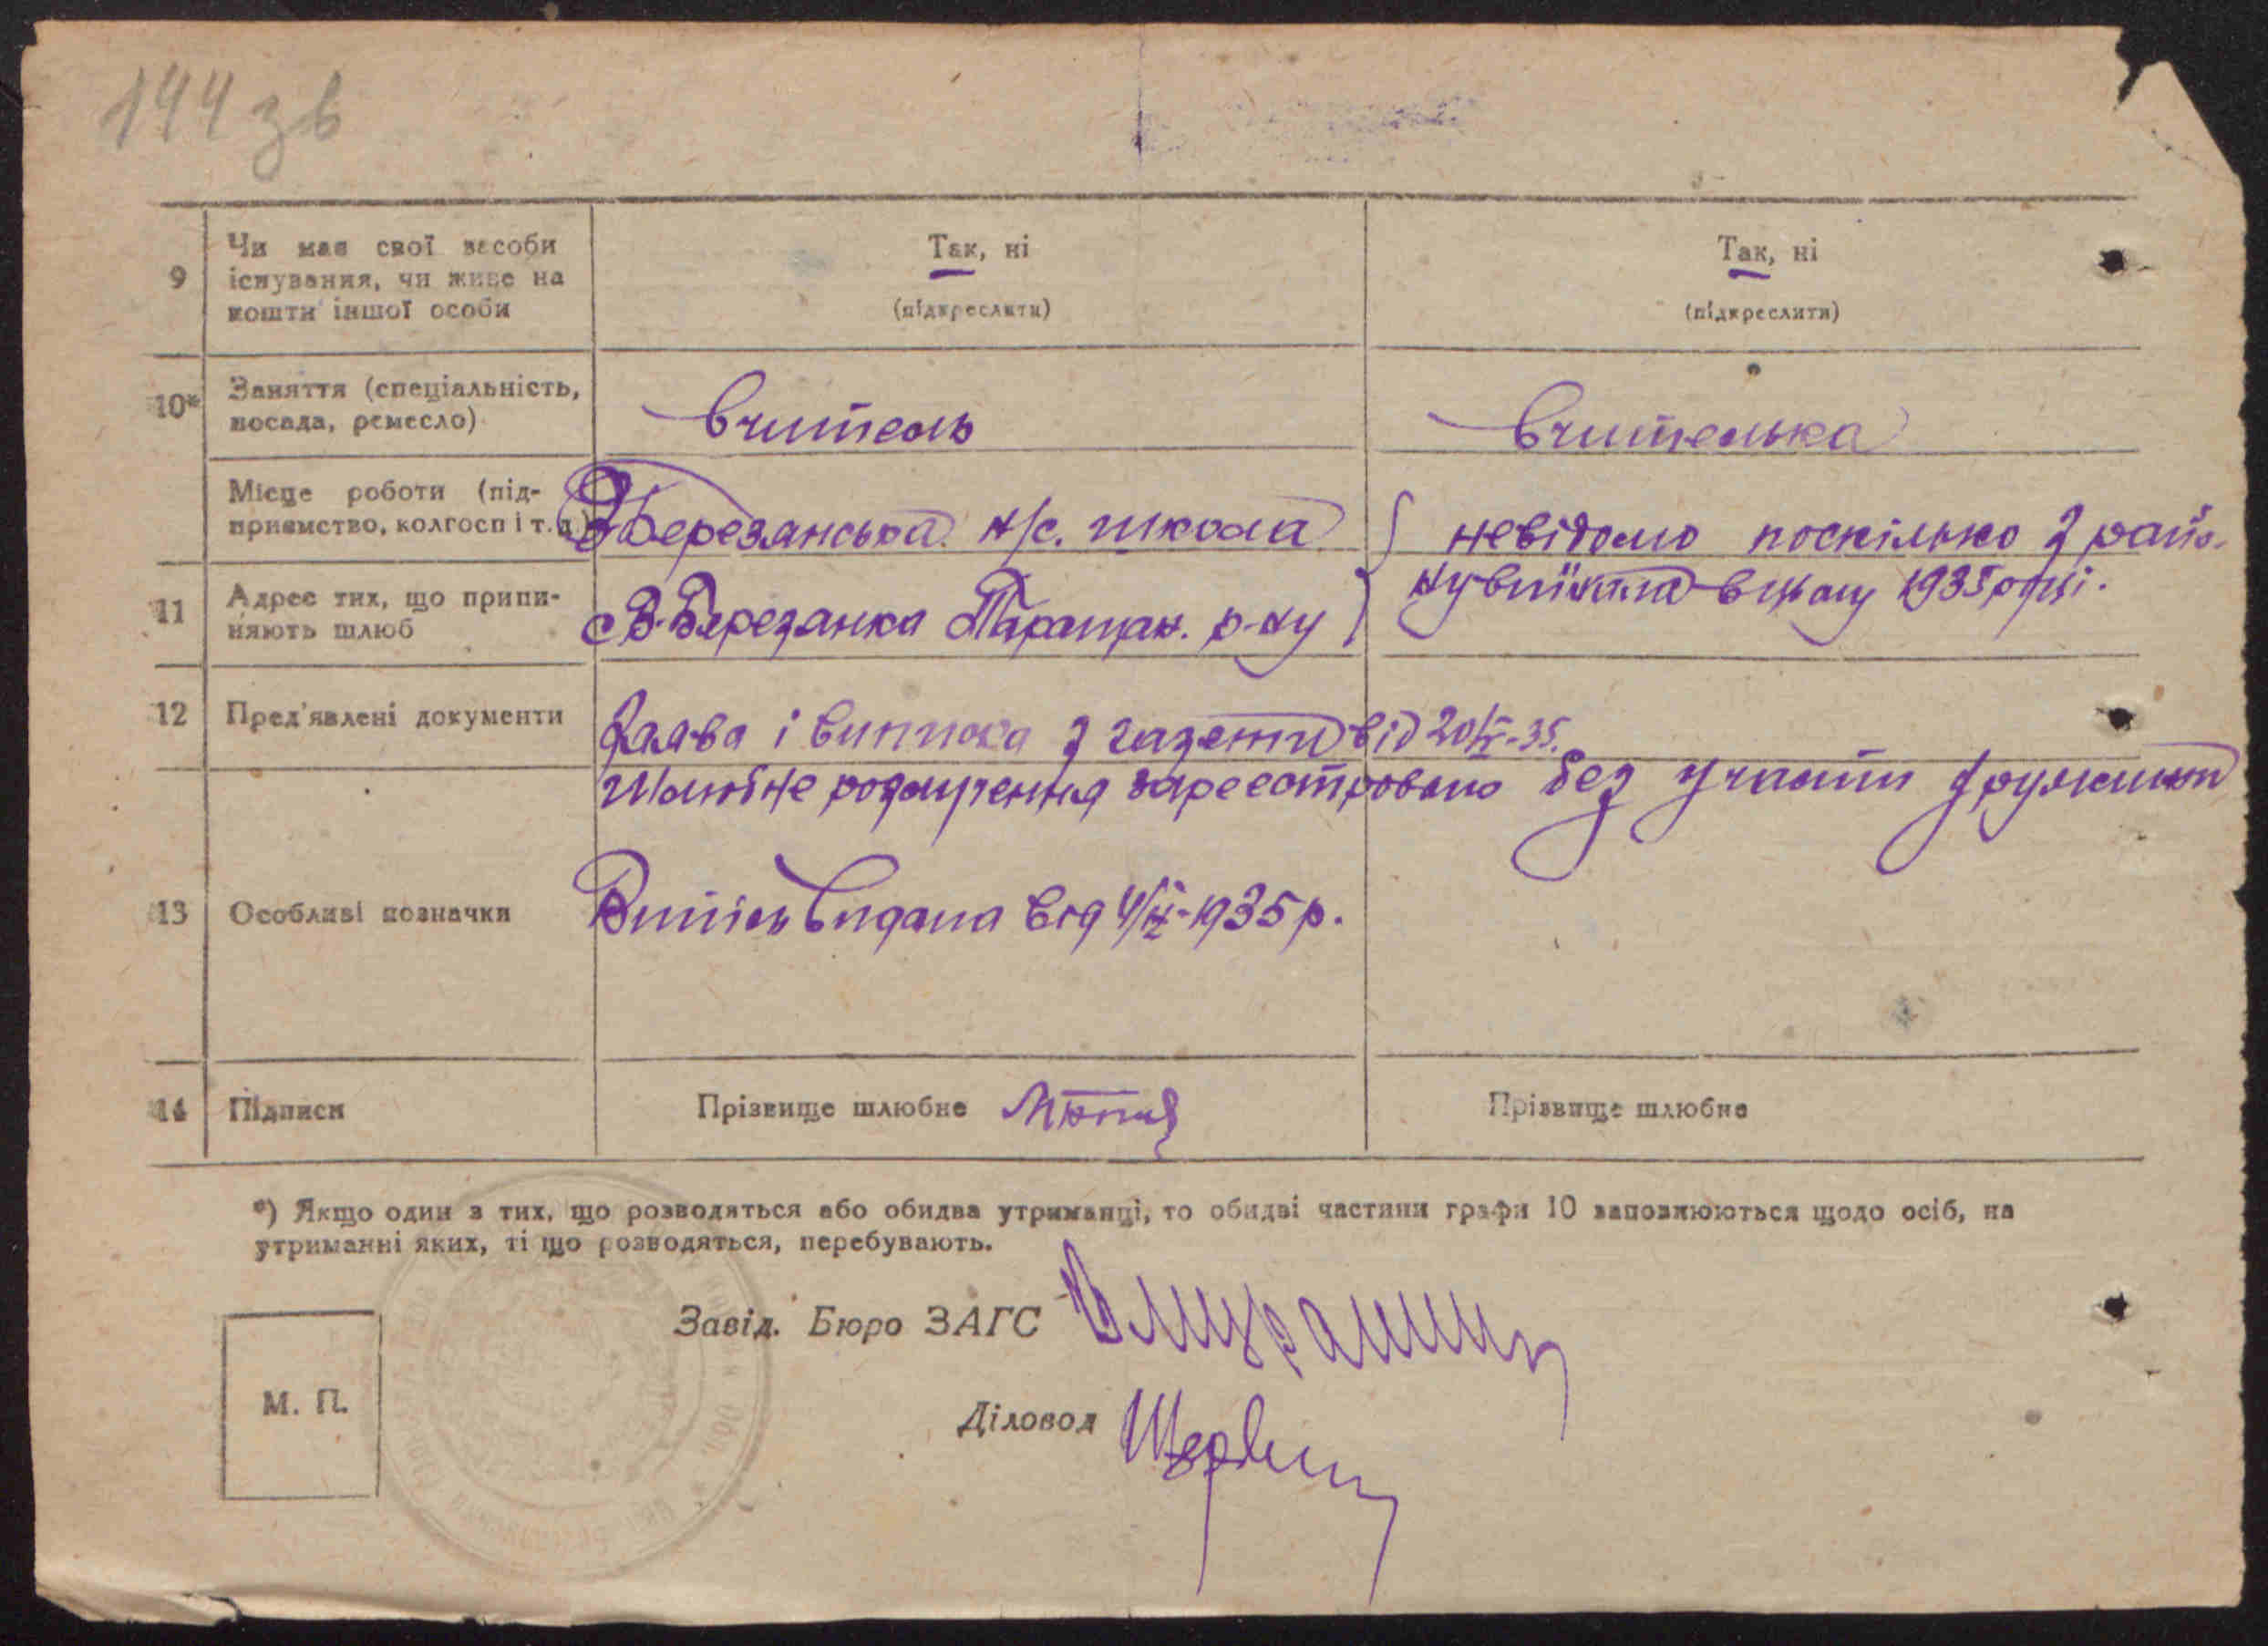 144 зв
9
Чи має свої засоби
існування, чи живе на
кошти іншої особи
Так, ні
(підкреслити)
Так, ні
(підкреслити)
10*
Заняття (спеціальність,
посада, ремесло)
вчитель
вчителька
Місце роботи (під-
приємство, колгосп і т. д.)
Березанська н/с. школа
невідомо поскілько з райо-
ну виїхала в цьому 1935 році.
11
Адрес тих, що припи-
няють шлюб
с В-Березанка Таращан. р-ну
12
Пред'явлені документи
Заява і виписка з газети від 20/IV-35.
13
Особливі позначки
Шлюбне розлучення зареєстровано без участи дружини
Випись видана від 4/IX-1935 р.
14
Підписи
Прізвище шлюбне
Прізвище шлюбне
*) Якщо один з тих, що розводяться або обидва утриманці, то обидві частини графи 10 заповнюються щодо осіб, на
утриманні яких, ті що розводяться, перебувають.
Завід. Бюро ЗАГС
М. П.
Діловод